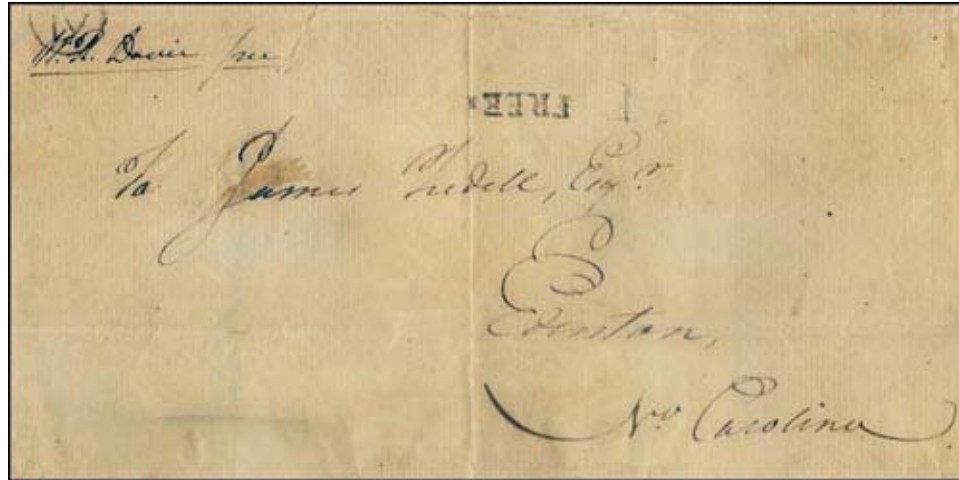 W. R. Davie free
FREE
To James Iredell, Esqr.
Edenton,
No. Carolina